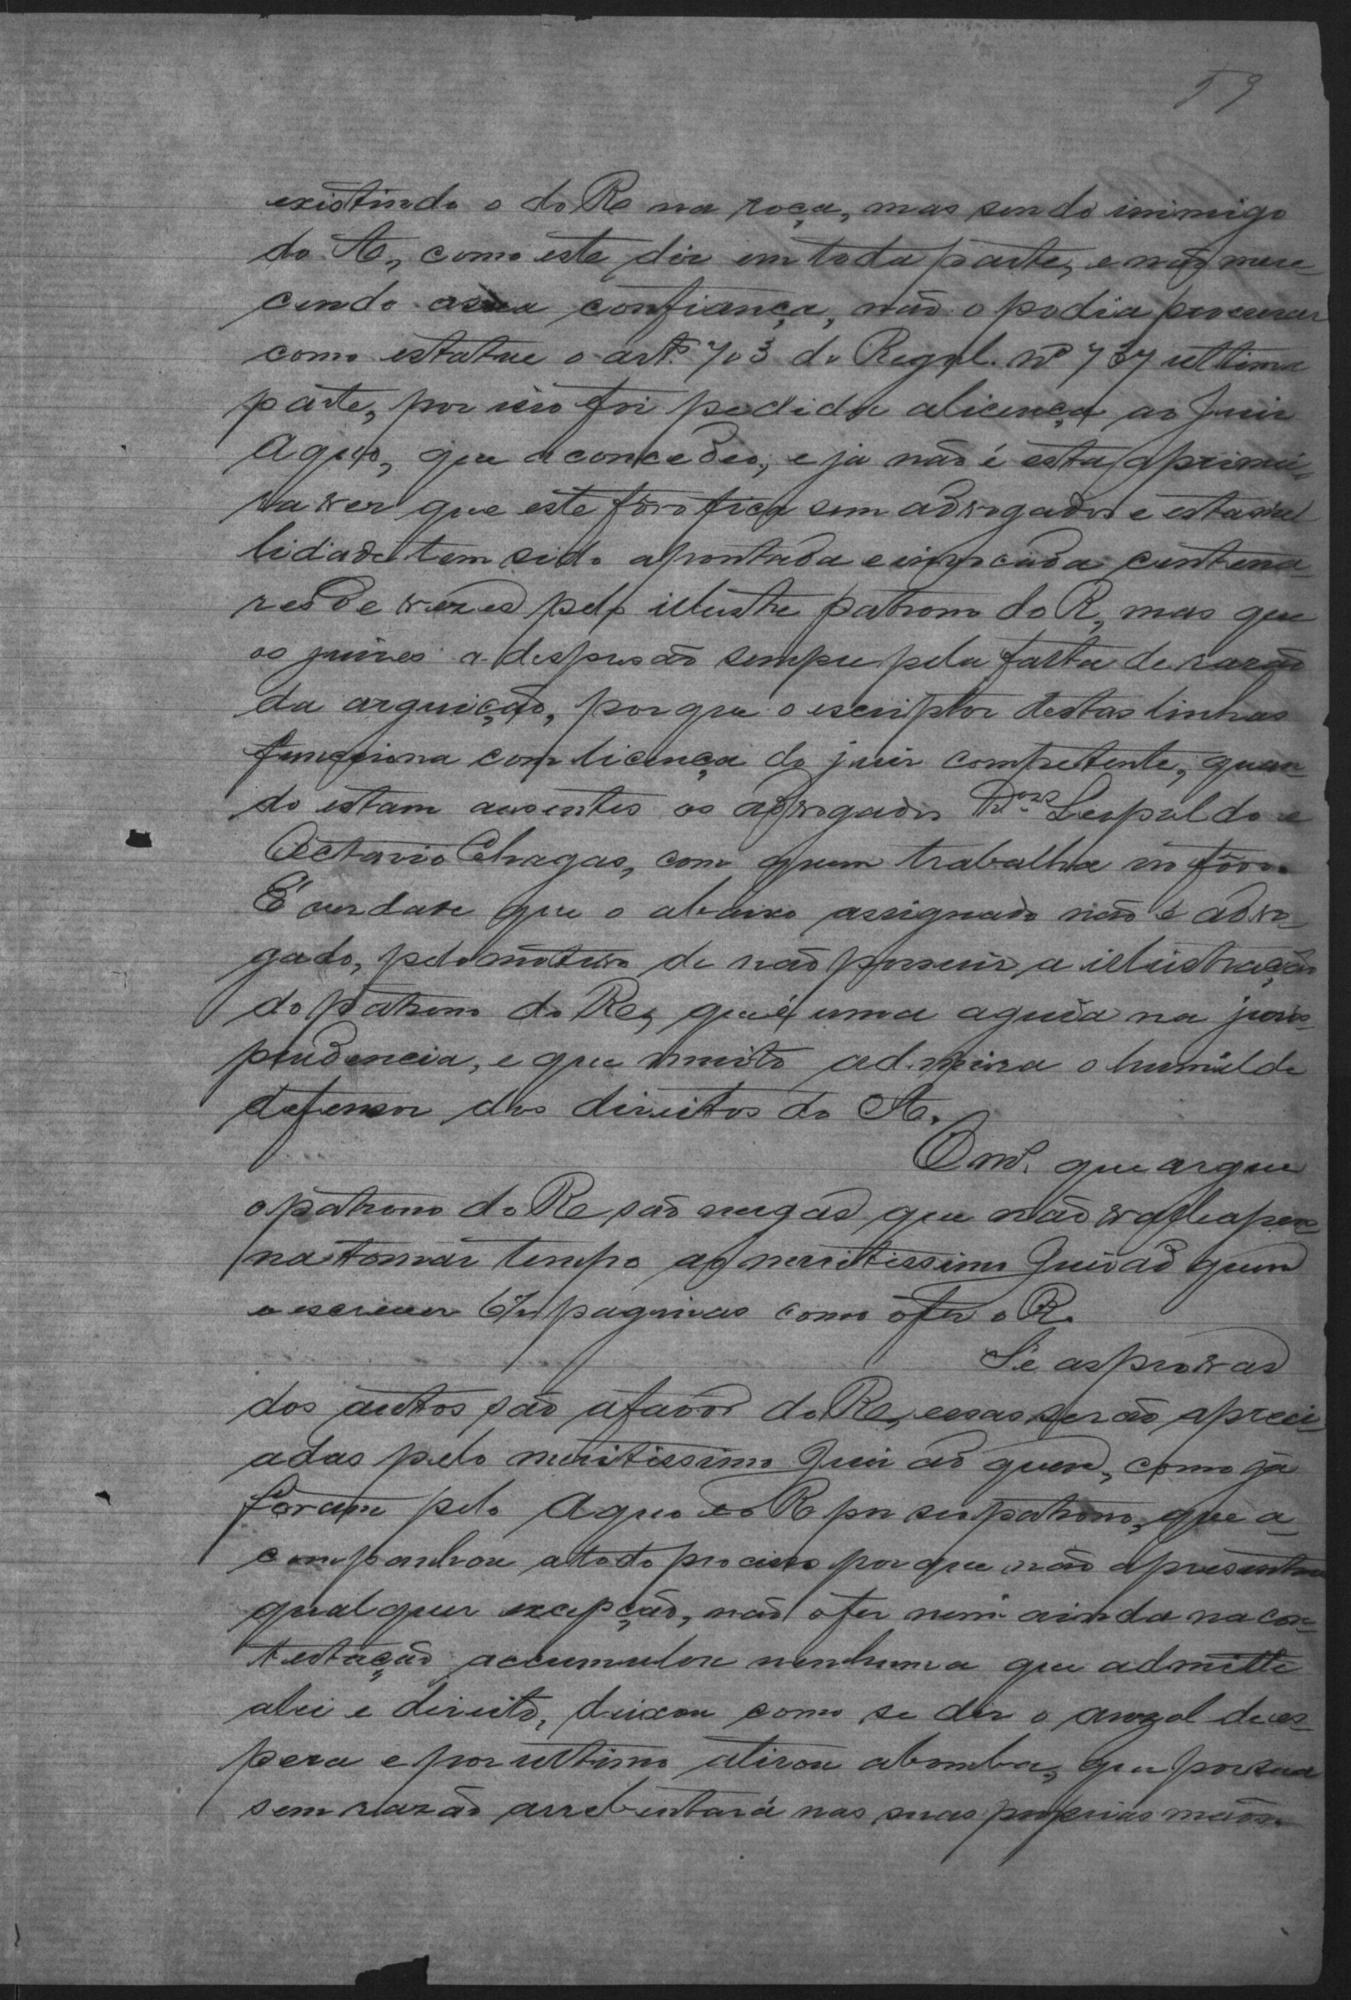 59
existindo o do R na roça, mas sendo inimigo
do A, como este diz em toda parte, e não mere-
cendo asua confiança, não o podia procurar
como estatue o artº 703 do Regul. nº 737 ultima
parte, por isso foi pedida alicença ao Juiz
Aquo, que a concedeo, e ja não é esta aprimei-
ra vez que este fôro fica sem advogados e esta
lidade tem sido apontada e invocada centena-
res de vezes pelo illustre patrono do R, mas que
os juizes a despresão sempre pela falta de razão
da arguição, porque o escriptor destas linhas
funcciona com licença do juiz competente, quan-
do estam ausentes os advogados Drs. Leopoldo e
Octavio Chagas, com quem trabalha no fôro.
É verdade que o abaixo assignado não é advo-
gado, pelo motivo de não possuir a illustração
do patrono do R, que é uma aguia na juris-
prudencia, e que muito admira o humilde
defensor dos direitos do A.
O mº. que argue
o patrono do R são nugas que não vale apen
na tomar tempo ao meritissimo Juiz ad quem
e escrever paginas como ofez o R.
Se asprovas
dos autos são afavor do R, essas serão apreci-
adas pelo meritissimo Juiz ad quem, como já
foram pelo Aquo e o R por seo patrono, que a-
companhou atodo processo porque não apresentou
qualquer excepção, não ofez nem ainda na con-
testação accumulou nenhuma que admitte
alei e direito, deixou como se diz o anzol de es-
pera e por ultimo atirou abomba, que por sua
sem razão arrebentará nas suas proprias mãos.